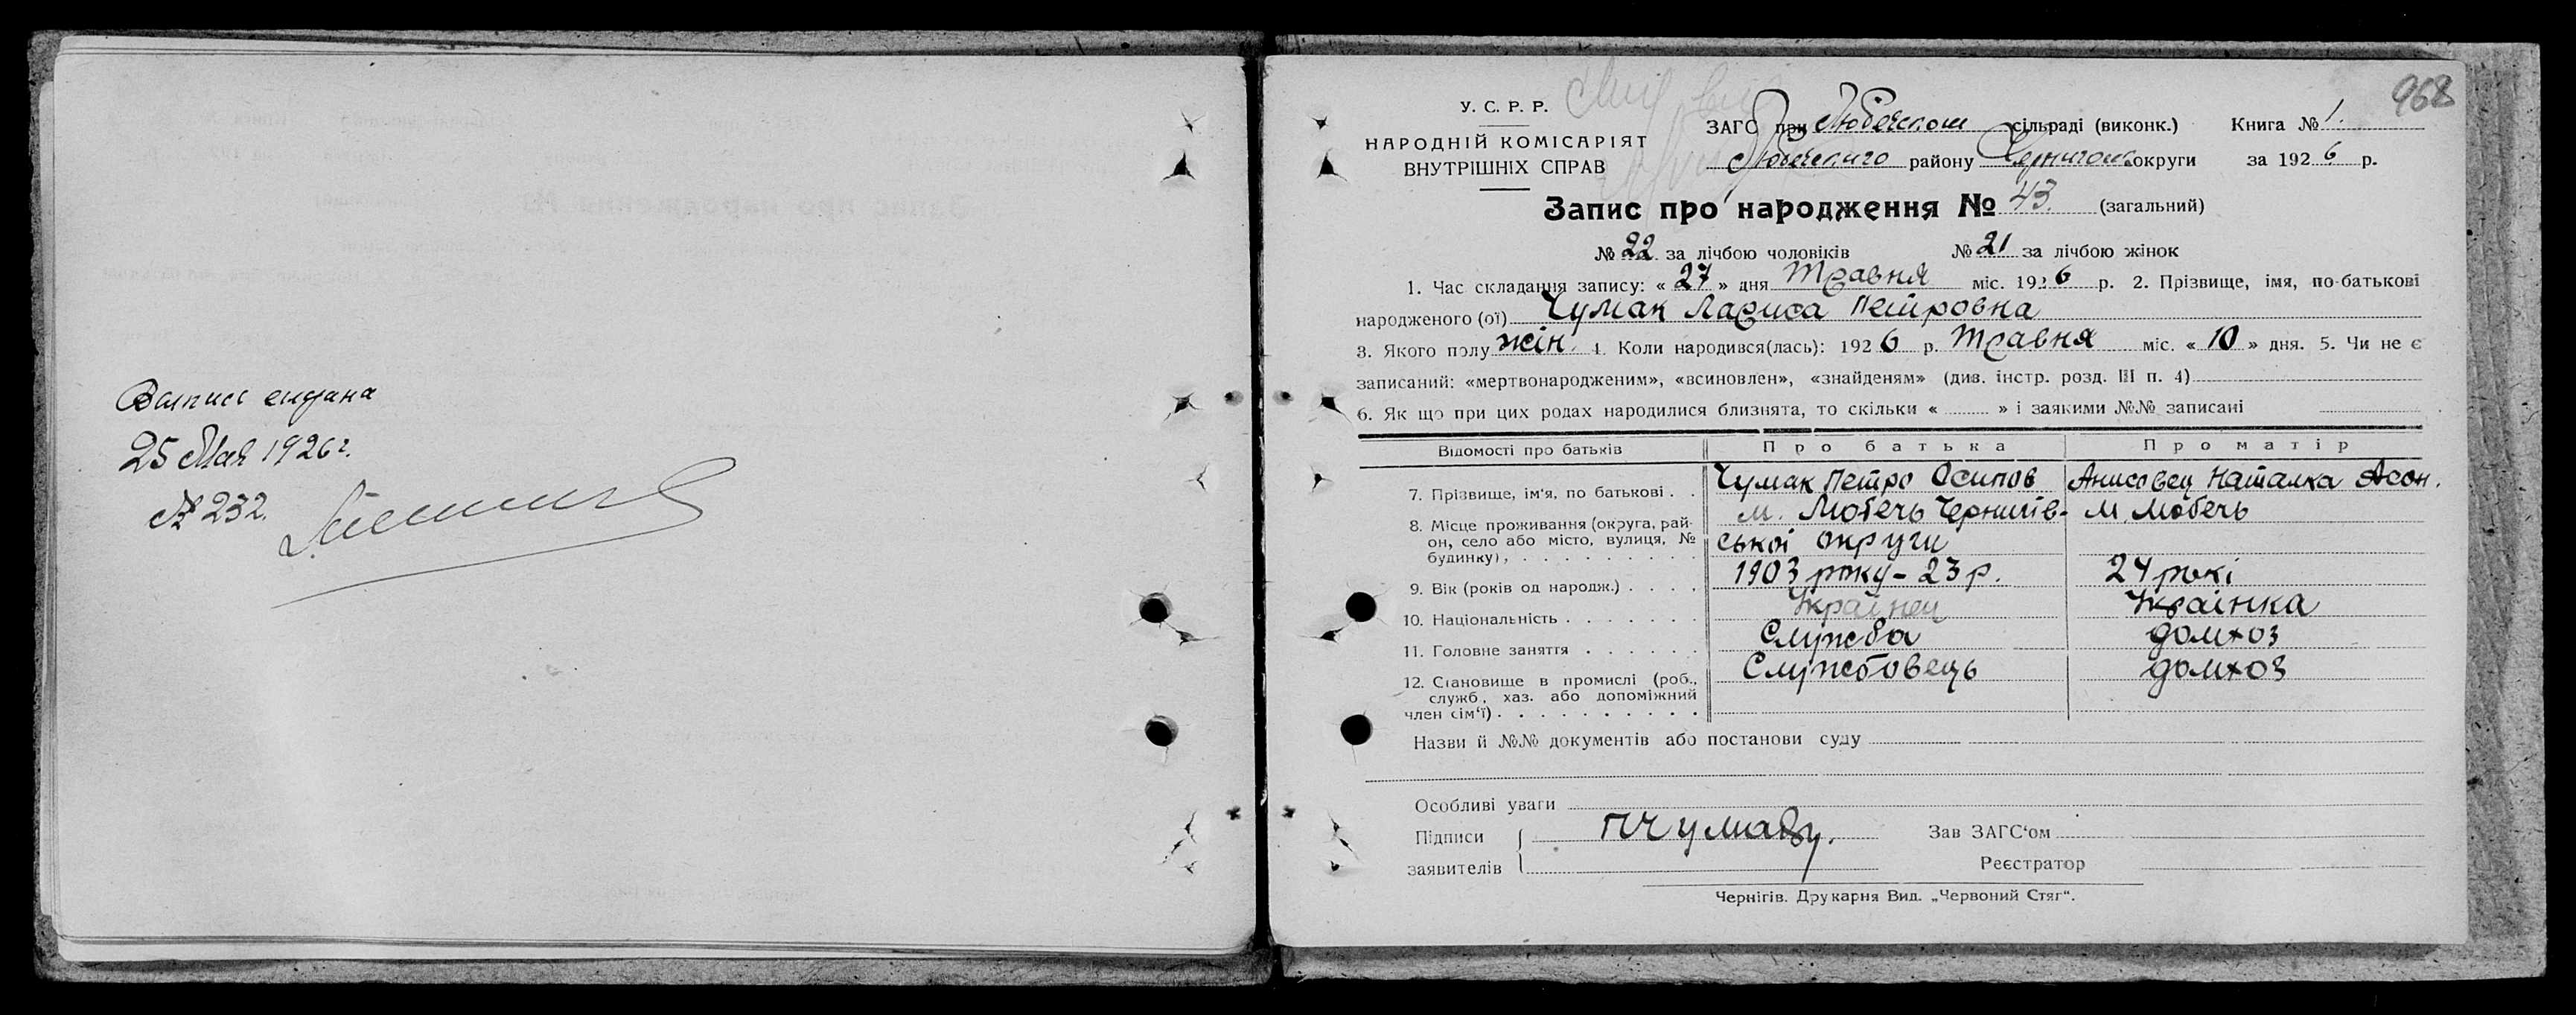 Выпись выдана
25 Мая 1926 г.
№ 232.
968
У. С. Р. Р.
НАРОДНІЙ КОМІСАРІЯТ
ВНУТРІШНІХ СПРАВ
ЗАГС при Любечском сільраді (виконк.) Книга № 1.
Любечского району округи за 1926 р.
Запис про народження № 43. (загальний)
№ 22 за лічбою чоловіків № 21 за лічбою жінок
1. Час складання запису: « 27 » дня Травня міс. 1926 р. 2. Прізвище, імя, по-батькові
народженого (ої) Чумак Лариса Петровна
3. Якого полу жін. 4. Коли народився(лась): 1926 р. Травня міс. « 10 » дня. 5. Чи не є
записаний: «мертвонародженим», «всиновлен», «знайденям» (див. інстр. розд. III п. 4)
6. Як що при цих родах народилися близнята, то скільки « » і заякими №№ записані
Відомості про батьків Про батька Про матір
7. Прізвище, ім'я, по батькові . . Чумак Петро Осипов Анисовец Наталка
8. Місце проживання (округа, рай- м. Любечь Чернигів- м. Любечь
он, село або місто, вулиця, № ської округи
будинку), . . . . . . . . . .
9. Вік (років од народж.) . . . . 1903 року - 23 р. 24 рокі
10. Національність . . . . . . . Українец Українка
11. Головне заняття . . . . . . Служба домхоз
12. Становище в промислі (роб., Службовець домхоз
служб, хаз. або допоміжний
член сім'ї) . . . . . . . . . .
Назви й №№ документів або постанови суду
Особливі уваги
Підписи Зав ЗАГС'ом
заявителів Реєстратор
Чернігів. Друкарня Вид. „Червоний Стяг“.